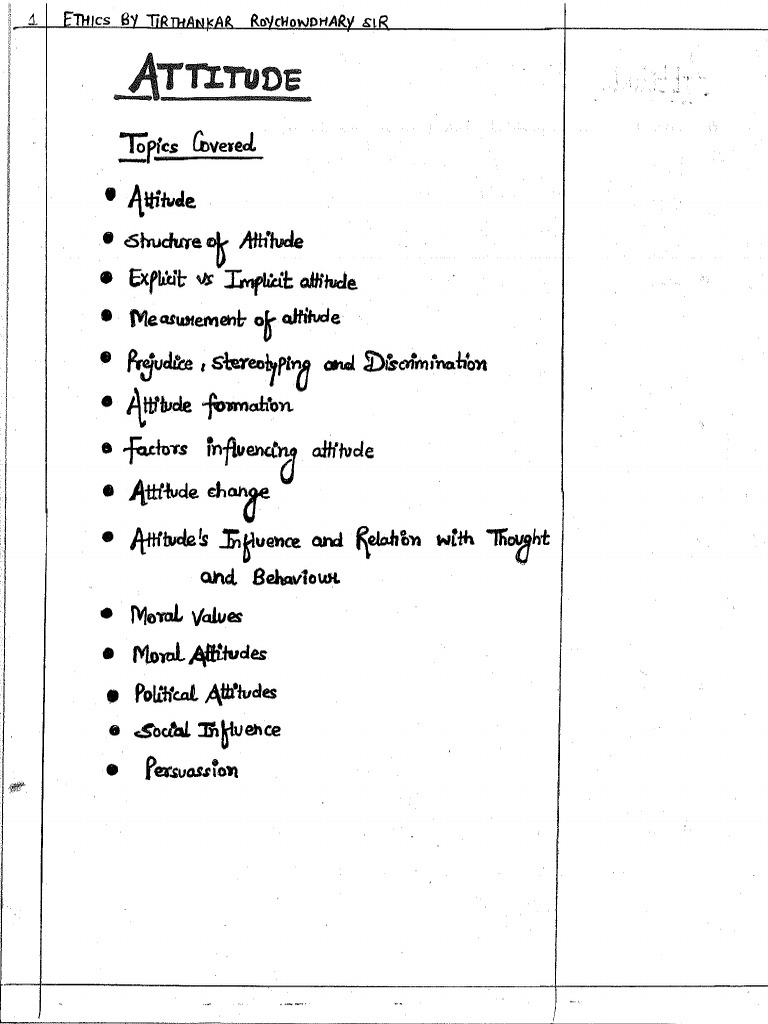 1 ETHICS BY TIRTHANKAR ROYCHOWDHARY SIR
ATTITUDE
Topics Covered
• Attitude
• Structure of Attitude
• Explicit vs Implicit attitude
• Measurement of attitude
• Prejudice, Stereotyping and Discrimination
• Attitude formation
• Factors influencing attitude
• Attitude change
• Attitude's Influence and Relation with Thought
and Behaviour
• Moral Values
• Moral Attitudes
• Political Attitudes
• Social Influence
• Persuassion